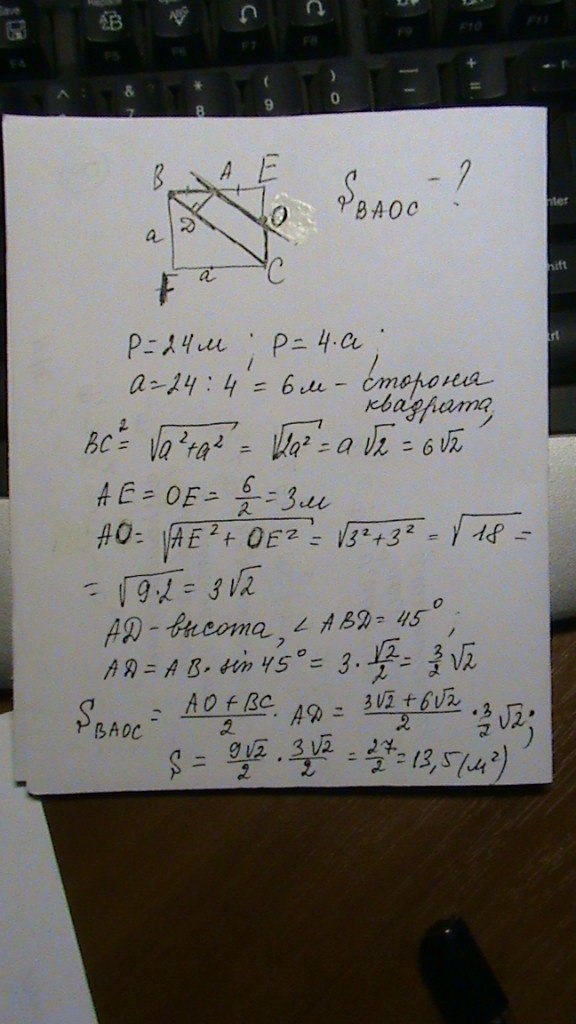 F4
F5
F6
F7
F8
F9
F10
F11
^
&
7
*
8
(
9
)
0
—
+
=
B A E
S_BAOC - ?
O
a D
F a C
P=24м; P=4·a;
a=24:4=6м - сторона
квадрата,
BC²= √a²+a² = √2a² = a√2 = 6√2
AE = OE = 6/2 = 3м
AO = √AE²+OE² = √3²+3² = √18 =
= √9·2 = 3√2
AD-высота, ∠ABD=45°;
AD=AB·sin45°=3·√2/2=3/2√2
S_BAOC = AO+BC/2 · AD = 3√2+6√2/2 · 3/2√2;
S = 9√2/2 · 3√2/2 = 27/2 = 13,5(м²)